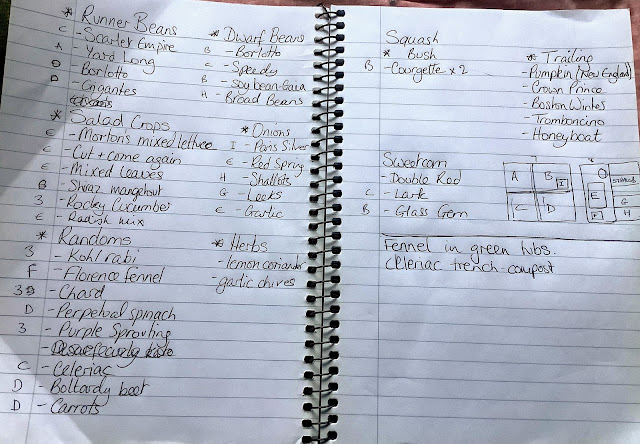 * Runner Beans
C - Scarlet Empire
A - Yard Long
O - Borlotto
D - Gigantes
* Salad Crops
C - Morton's mixed lettuce
C - Cut + come again
E - Mixed leaves
G - Shiraz mangetout
3 - Rocky Cucumber
E - Radish mix
* Randoms
3 - Kohl rabi
F - Florence fennel
- Chard
D - Perpetual spinach
3 - Purple Sprouting
C - Celeriac
D - Boltardy beet
D - Carrots
* Dwarf Beans
B - Borlotto
C - Speedy
B - Soy bean-Gaia
H - Broad Beans
* Onions
I - Paris Silver
E - Red Spring
H - Shallots
G - Leeks
E - Garlic
* Herbs
- lemon coriander
- garlic chives
Squash
* Bush
B - Courgette x 2
* Trailing
- Pumpkin (New England)
- Crown Prince
- Boston Winter
- Tromboncino
- Honeyboat
Sweetcorn
- Double Red
C - Lark
B - Glass Gem
A B I
C D
E
F
G
H
Fennel in green tubs.
Celeriac trench-compost